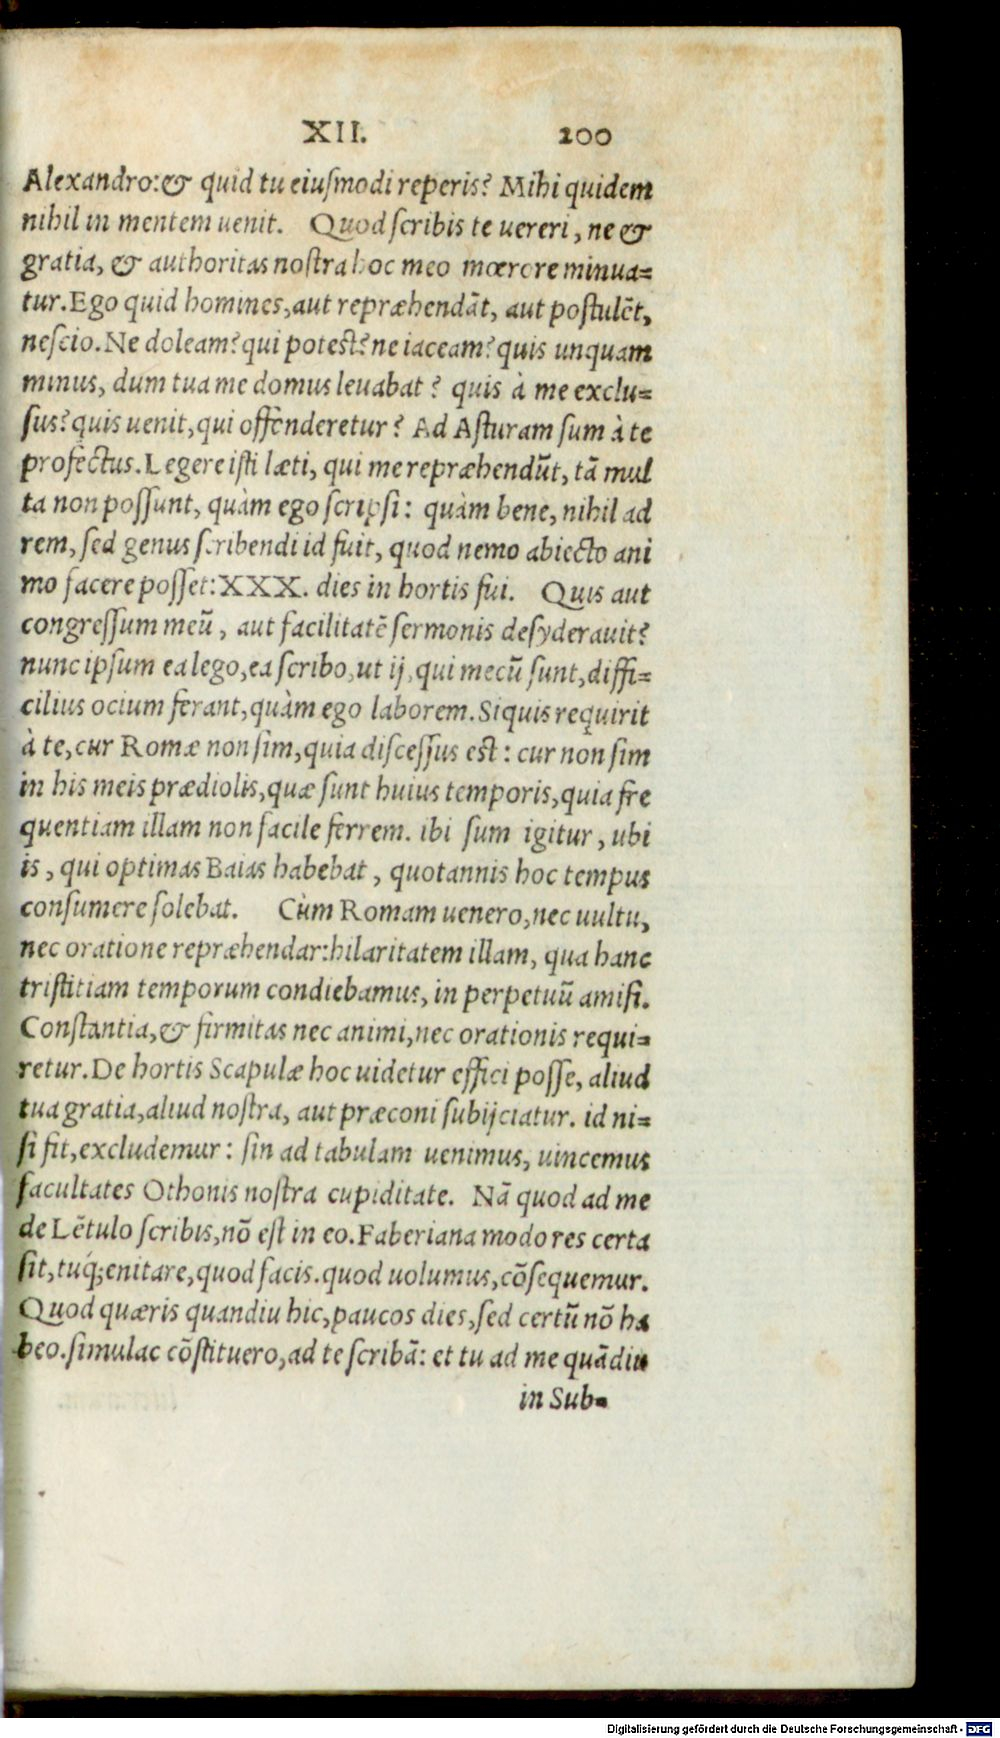 XII. 200
Alexandro: & quid tu eiuſmodi reperis? Mihi quidem
nihil in mentem uenit. Quod ſcribis te uereri, ne &
gratia, & authoritas noſtra hoc meo mœrore minua=
tur. Ego quid homines, aut repræhendāt, aut poſtulēt,
neſcio. Ne doleam? qui poteſt? ne iaceam? quis unquam
minus, dum tua me domus leuabat? quis à me exclu=
ſus? quis uenit, qui offenderetur? Ad Aſturam ſum à te
profectus. Legere iſti læti, qui me repræhendūt, tā mul
ta non poſſunt, quàm ego ſcripſi: quàm bene, nihil ad
rem, ſed genus ſcribendi id fuit, quod nemo abiecto ani
mo facere poſſet: XXX. dies in hortis fui. Quis aut
congreſſum meū, aut facilitatē ſermonis deſyderauit?
nunc ipſum ea lego, ea ſcribo, ut ij, qui mecū ſunt, diffi=
cilius ocium ferant, quàm ego laborem. Siquis requirit
à te, cur Romæ non ſim, quia diſceſſus eſt: cur non ſim
in his meis prædiolis, quæ ſunt huius temporis, quia fre
quentiam illam non facile ferrem. ibi ſum igitur, ubi
is, qui optimas Baias habebat, quotannis hoc tempus
conſumere ſolebat. Cùm Romam uenero, nec uultu,
nec oratione repræhendar: hilaritatem illam, qua hanc
triſtitiam temporum condiebamus, in perpetuū amiſi.
Conſtantia, & firmitas nec animi, nec orationis requi=
retur. De hortis Scapulæ hoc uidetur effici poſſe, aliud
tua gratia, aliud noſtra, aut præconi ſubijciatur. id ni=
ſi fit, excludemur: ſin ad tabulam uenimus, uincemus
facultates Othonis noſtra cupiditate. Nā quod ad me
de Lētulo ſcribis, nō eſt in eo. Faberiana modo res certa
ſit, tuq́; enitare, quod facis. quod uolumus, cōſequemur.
Quod quæris quandiu hic, paucos dies, ſed certū nō ha
beo. ſimulac cōſtituero, ad te ſcribā: et tu ad me quādiu
in Sub=
Digitalisierung gefördert durch die Deutsche Forschungsgemeinschaft - DFG